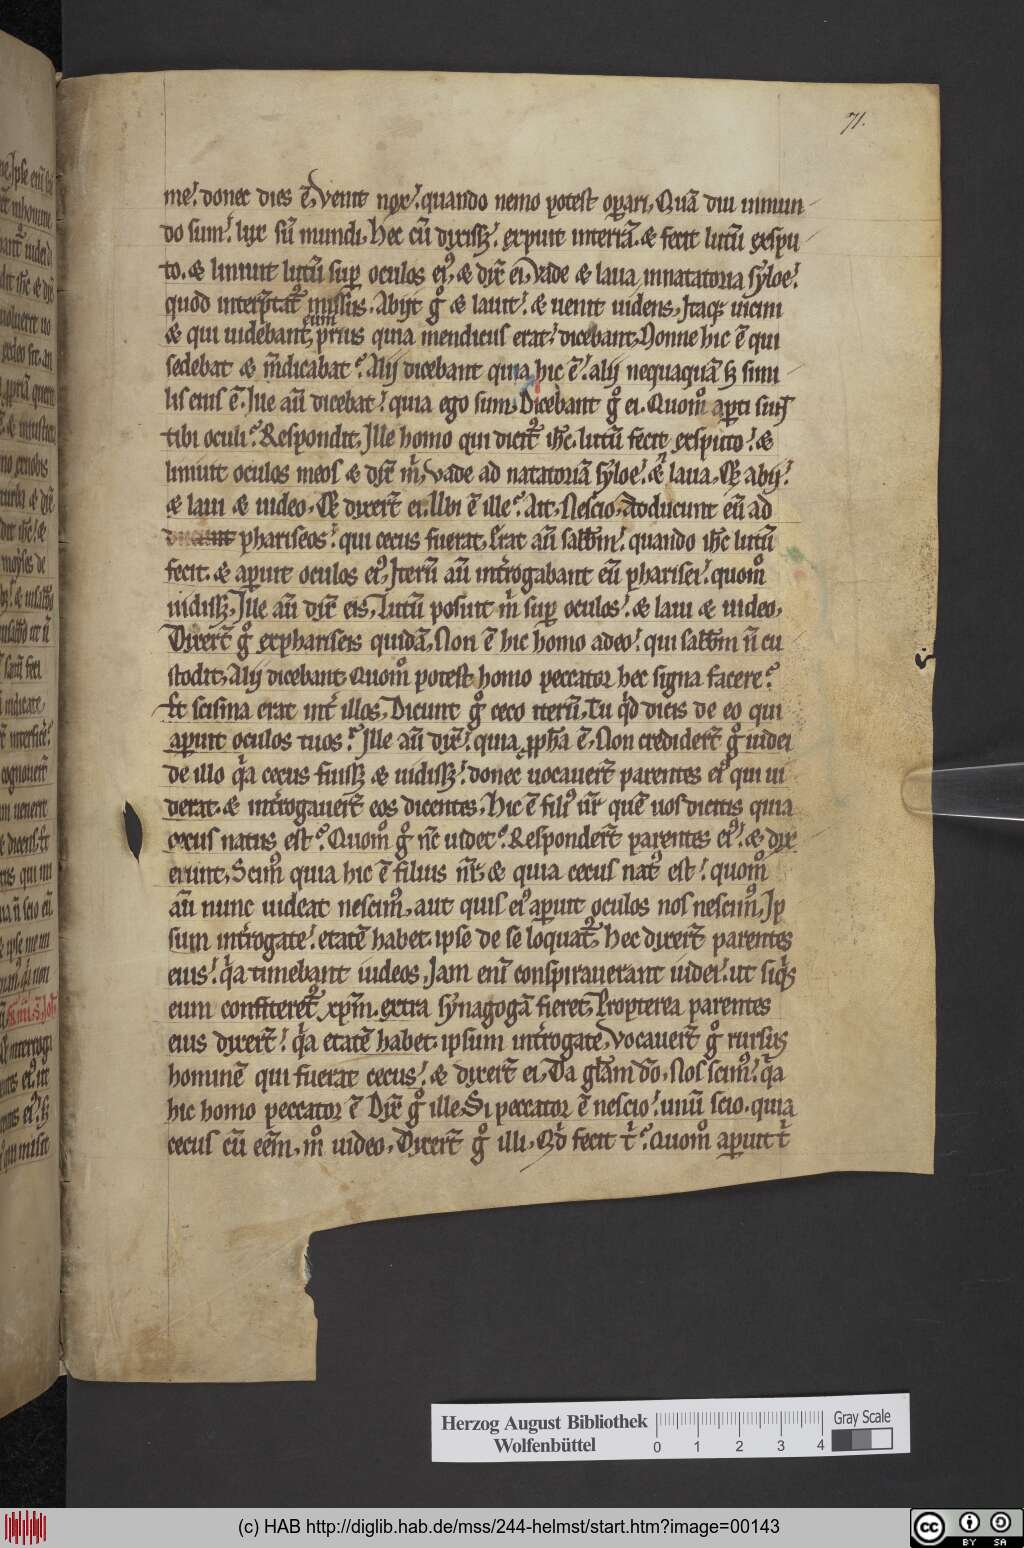 71.
me. donec dies ē, venit nox. quando nemo potest op̄ari, Quā diu inmun
do sum. lux sū mundi, Hec cū dixiss;. expuit interrā. & fecit lutū exspu
to. & liniuit lutū sup̄ oculos ei⁹, & dix̄ ei, vade & laua innatatoria syloe.
quod interp̄tat᷑ missus, Abijt g° & lauit. & uenit uidens, Itaq; uicini
eum
& qui uidebant, p̄rius quia mendicus erat. dicebant, Nonne hic ē qui
sedebat & m̄dicabat. Alij dicebant quia hic ē. alij nequaquā s; simi
lis eius ē. Ille aū dicebat. quia ego sum, Dicebant g° ei. Quom° ap̄ti sun̄t
tibi oculi. Respondit, Ille homo qui dicit᷑ ih̄c. lutū fecit exsputo. &
liniuit oculos meos & dix̄ m̄, vade ad natatoriā syloe. & laua, Et abij.
& laui & uideo, Et dixer̄t ei, Ubi ē ille. Ait, Nescio, Adducunt eū ad
phariseos. qui cecus fuerat, Erat aū sabb̄m. quando ih̄c lutū
fecit. & ap̄uit oculos ei⁹, Iterū aū int̄rogabant eū pharisei. quom°
uidiss;, Ille aū dix̄ eis, Lutū posuit m̄ sup̄ oculos. & laui & uideo,
Dixer̄t g° expharíseis quidā, Non ē hic homo adeo. qui sabb̄m n̄ cu
stodit, Alij dicebant, Quom° potest homo peccator hec signa facere.
Et scisma erat int̄ illos, Dicunt g° ceco iterū, Tu q̄d dicis de eo qui
ap̄uit oculos tuos. Ille aū dix̄. quia pph̄a ē, Non crediderт̄ g° iudei
de illo q̄a cecus fuiss; & uidiss;. donec uocauer̄t parentes ei⁹ qui ui
derat. & int̄rogauer̄t eos dicentes, Hic ē fili⁹ ūr quē uos dicitis quia
cecus natus est. Quom° g° nc̄ uidet. Responder̄t parentes ei⁹. & dix
erunt, Scim⁹ quia hic ē filius nr̄, & quia cecus nat⁹ est. quom°
aū nunc uideat nescim⁹, aut quis ei⁹ ap̄uit oculos nos nescim⁹, Ip
sum int̄rogate. etatē habet. ipse de se loquat᷑, Hec dixer̄t parentes
eius. q̄a timebant iudeos, Iam eni̅ conspirauerant iudei. ut siq̄s
eum confiteret᷑ xp̄m. extra synagogā fieret, Propterea parentes
eius dixer̄t. q̄a etatē habet. ipsum int̄rogate, Vocauer̄t g° rursus
hominē qui fuerat cecus. & dixer̄t ei, Da gl̄am dō. Nos scim⁹. q̄a
hic homo peccator ē Dix̄ g° ille. Si peccator ē nescio. unū scio. quia
cecus cū eēm, m° uideo, Dixer̄t g° illi, Qd̄ fecit t̄. Quom° ap̄uit t̄
Herzog August Bibliothek
Wolfenbüttel
0 1 2 3 4
Gray Scale
(c) HAB http://diglib.hab.de/mss/244-helmst/start.htm?image=00143
cc BY SA